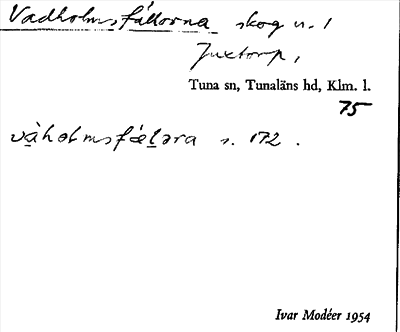 Vadholmsfällorna skog n. 1
Juxtorp,
Tuna sn, Tunaläns hd, Klm. l.
75
vàholmsfæḷəra s. 172.
Ivar Modéer 1954